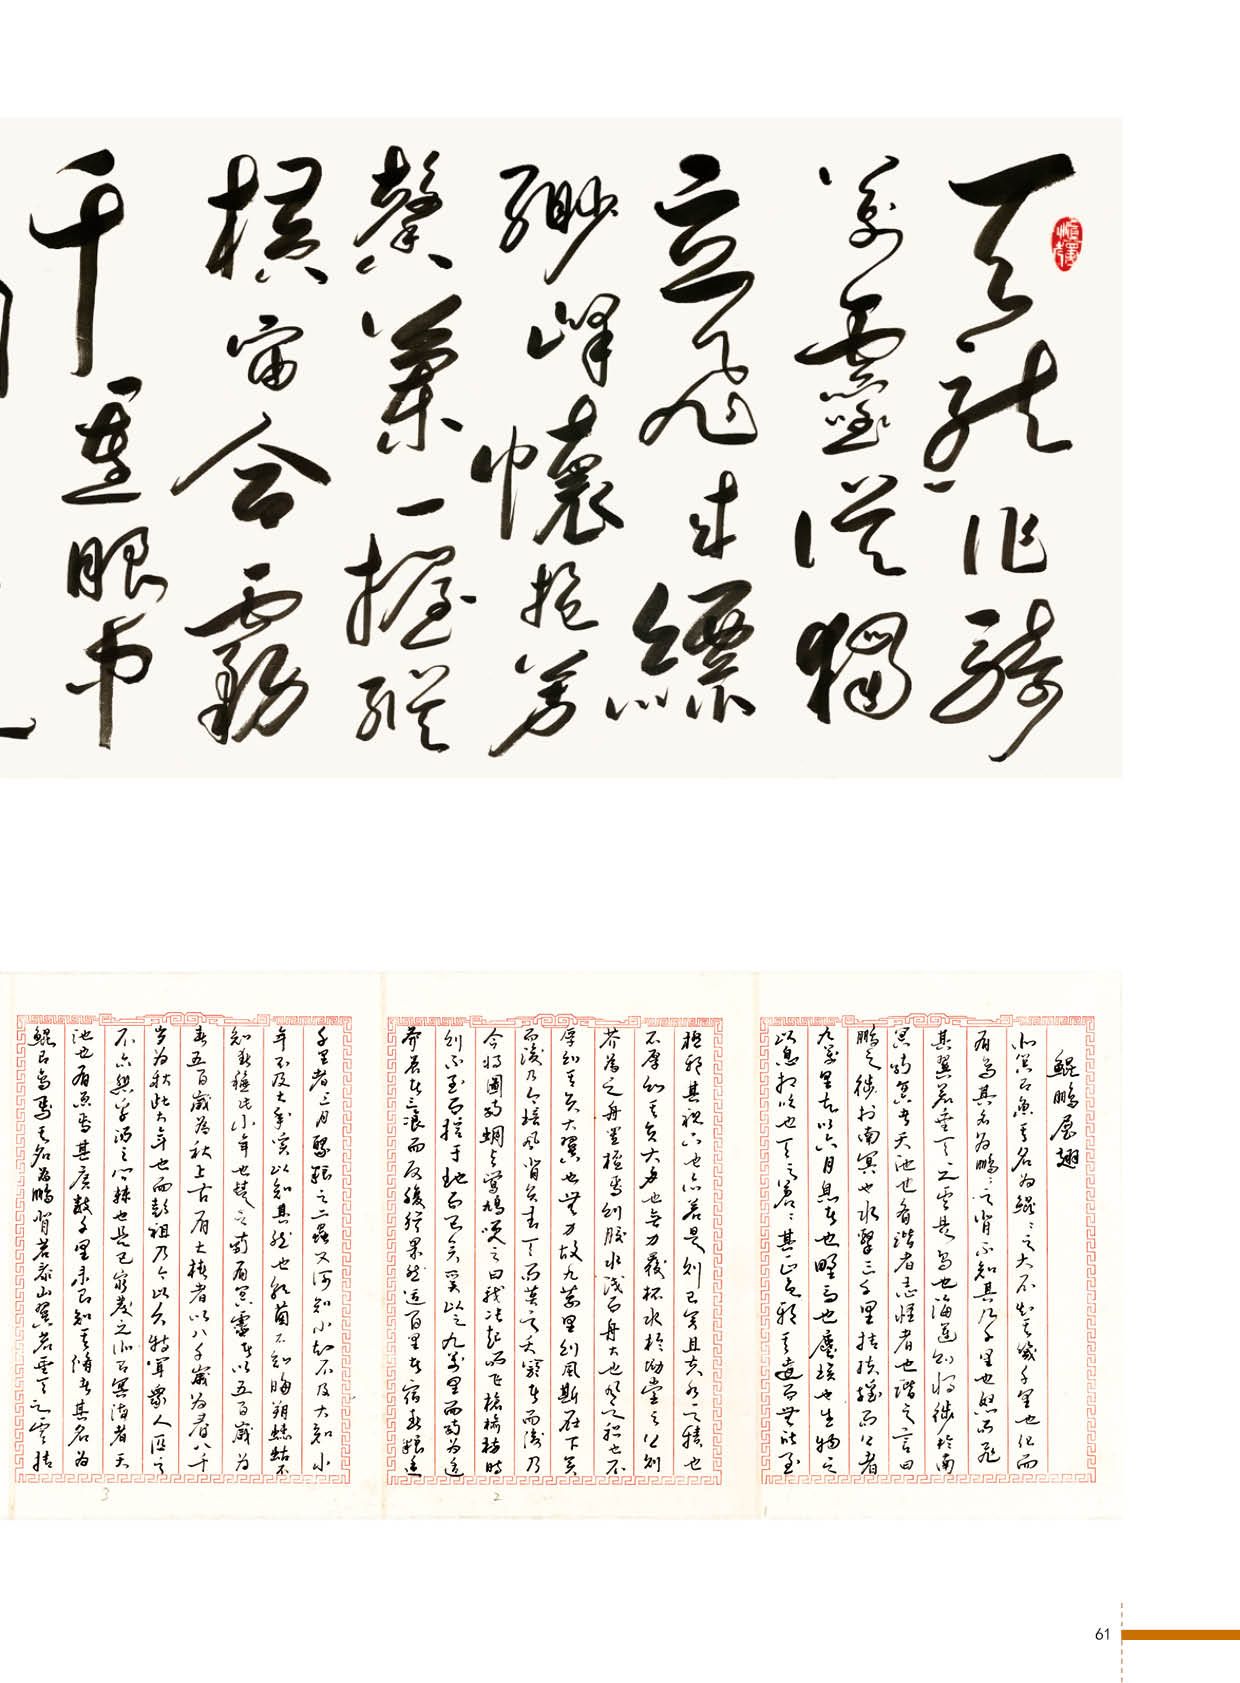 天龍作騎
萬靈從獨
立飛來縹
緲峰懷抱芳
馨蘭一握縱
橫宙合霧
千重眼中
鯤鵬展翅
北冥有魚其名為鯤〻之大不知其幾千里也化而
有鳥其名為鵬〻之背不知其几千里也怒而飛
其翼若垂天之雲是鳥也海運則將徙於南
冥南冥者天池也齊諧者志怪者也諧之言曰
鵬之徙於南冥也水擊三千里摶扶搖而上者
九萬里去以六月息者也野馬也塵埃也生物之
以息相吹也天之蒼〻其正色邪其遠而無所至
極邪其視下也亦若是則已矣且夫水之積也
不厚則其負大舟也無力覆杯水於坳堂之上則
芥為之舟置杯焉則膠水淺而舟大也風之積也不
厚則其負大翼也無力故九萬里則風斯在下矣
而後乃今培風背負青天而莫之夭閼者而後乃
今將圖南蜩與鷽鳩笑之曰我決起而飛槍榆枋時
則不至而控于地而已矣奚以之九萬里而南為適
莽蒼者三湌而反腹猶果然適百里者宿舂糧適
千里者三月聚糧之二蟲又何知小知不及大知小
年不及大年奚以知其然也朝菌不知晦朔蟪蛄不
知春秋此小年也楚之南有冥靈者以五百歲為
春五百歲為秋上古有大椿者以八千歲為春八千
歲為秋此大年也而彭祖乃今以久特聞眾人匹之
不亦悲乎湯之問棘也是已窮髮之北有冥海者天
池也有魚焉其廣數千里未有知其修者其名為
鯤有鳥焉其名為鵬背若泰山翼若垂天之雲摶
3
2
1
61